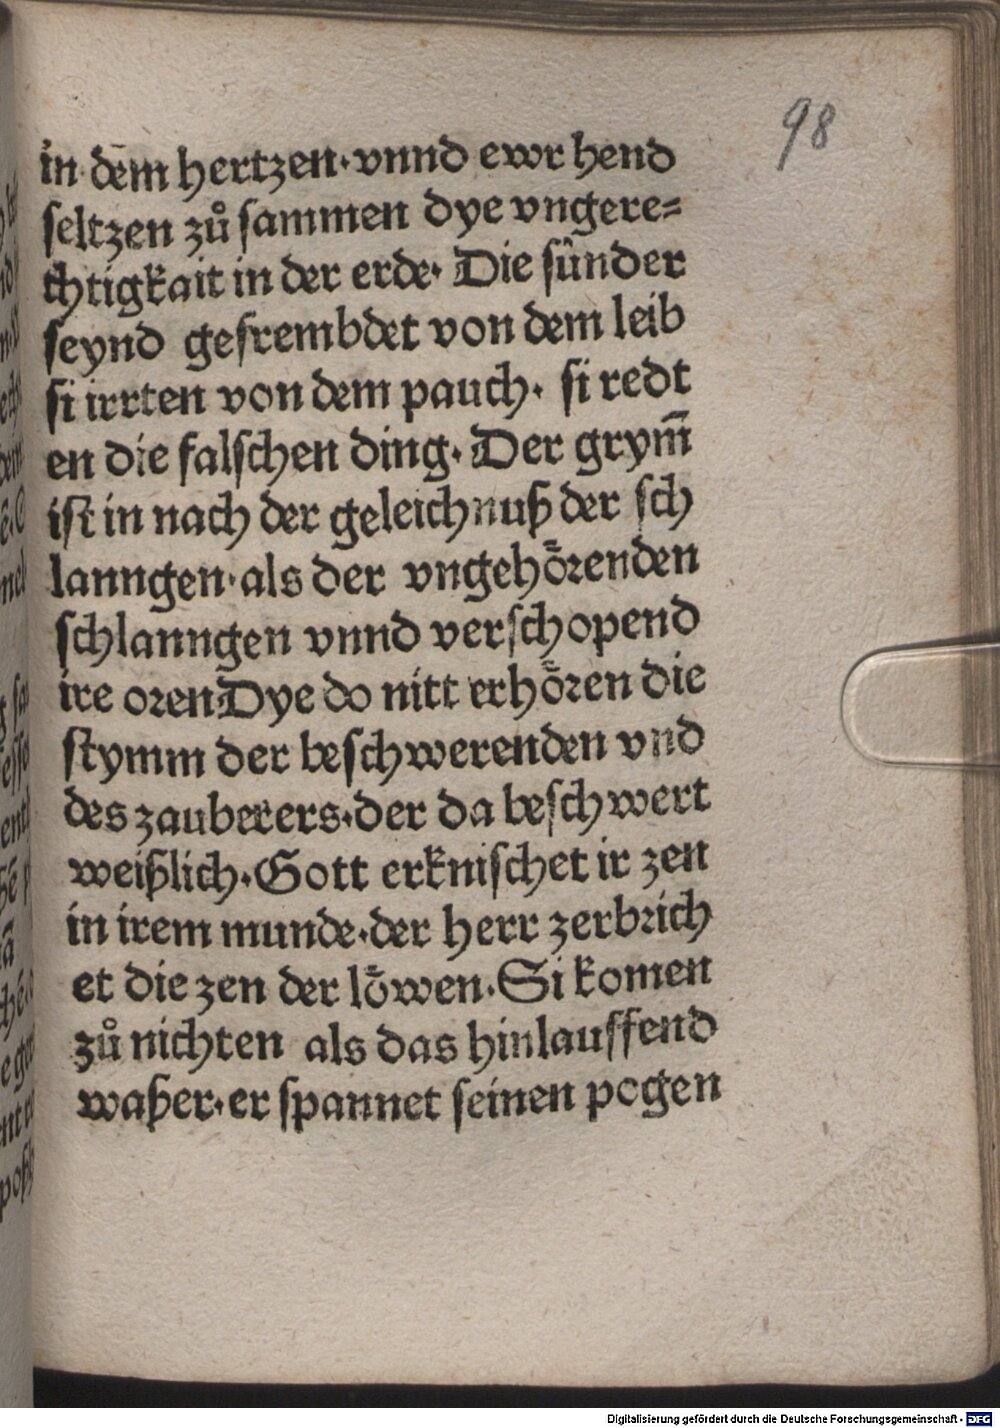 98
in dem hertzen·vnnd ewr hend
seltzen zů sammen dye vngere=
chtigkait in der erde· Die sünder
seynd gefrembdet von dem leib
si irrten von dem pauch· si redt
en die falschen ding· Der grym̄
ist in nach der geleichnuß der sch
lanngen·als der vngehörenden
schlanngen vnnd verschopend
ire oren Dye do nitt erhören die
stymm der beschwerenden vnd
des zauberers·der da beschwert
weißlich·Gott erknischet ir zen
in irem munde·der herr zerbrich
et die zen der löwen·Si komen
zů nichten als das hinlauffend
waßer·er spannet seinen pogen
Digitalisierung gefördert durch die Deutsche Forschungsgemeinschaft - DFG